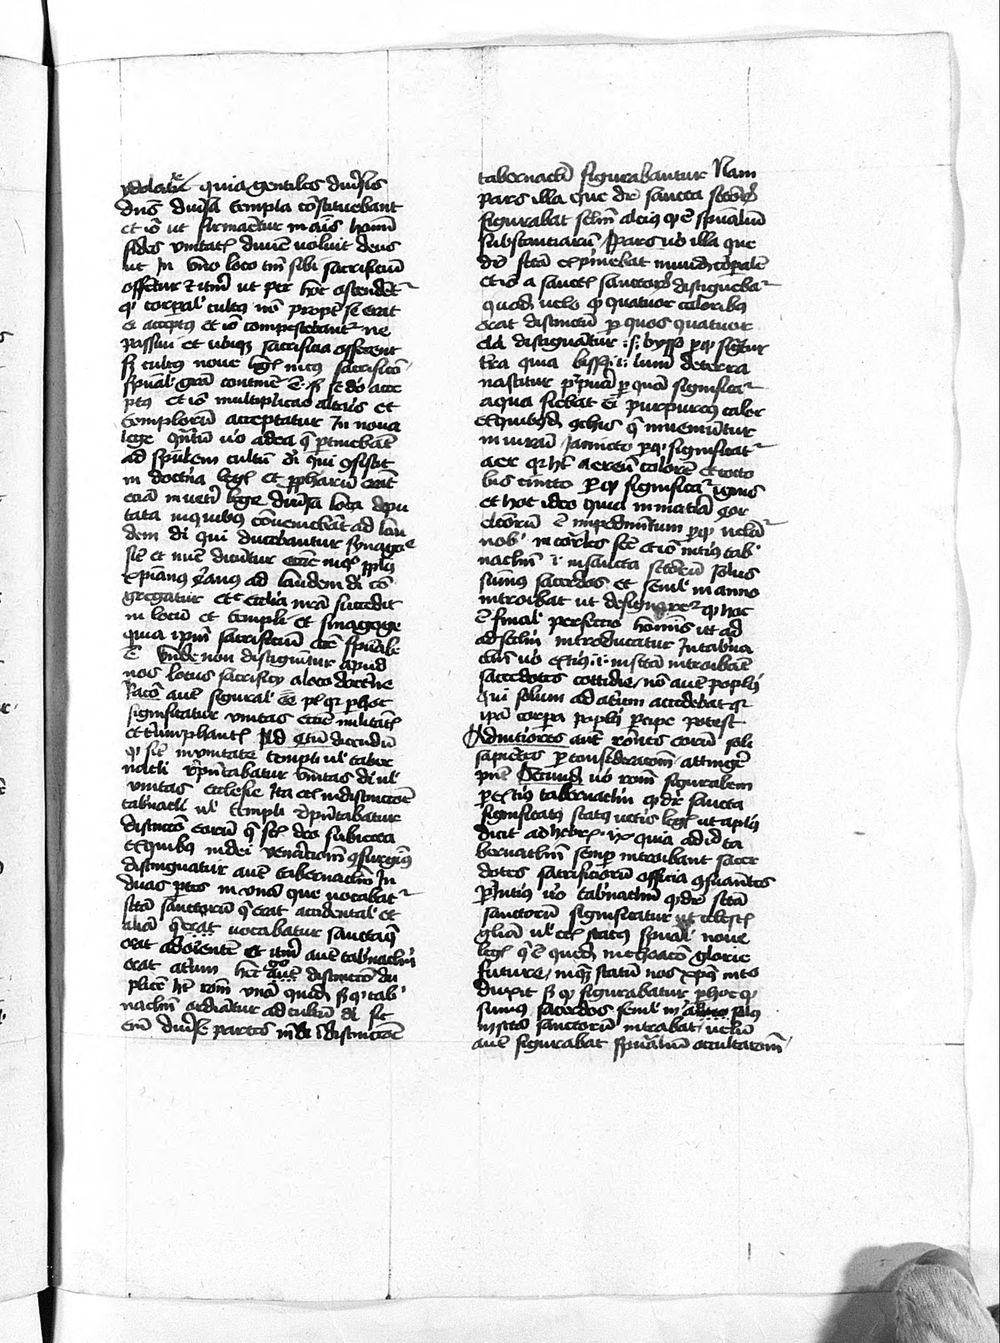 ydolatrie quia gentiles diuersis
diis diuersa templa constituebant
et io ut firmaretur in animis hominum
fides unitatis diuine uoluit deus
ut in uno loco tantum sibi sacrificium
offerretur et iterum ut per hoc ostenderet
quod corporalis cultus non propter se erat
ei acceptus et io compescebantur ne
passim et ubique sacrificia offerrent
sed cultus noue legis in cuius sacrificio
spiritualis gratia continetur est secundum se deo acce
ptus et io multiplicatio altaris et
templorum acceptatur In noua
lege quantum uero ad ea que pertinebant
ad spiritualem cultum dei qui consistit
in doctrina legis et prophetarum erant
etiam in ueteri lege diuersa loca depu
tata in quibus conueniebant ad lau
dem dei qui dicebantur synagoge
sicut et nunc dicuntur ecclesie in quibus populus
christianus ad laudem dei con
gregatur et ecclesia nostra succedit
in locum et templi et sinagoge
quia ipsum sacrificium ecclesie spirituale
est Unde non distinguitur apud
nos locus sacrificii a loco doctrine
Ratio autem figuralis esse potest quia per hoc
significatur unitas ecclesie militantis
et triumphantis Ad dicendum
quod sicut in unitate templi uel taber
naculi representabatur unitas dei uel
unitas ecclesie Ita etiam in distinctione
tabernaculi uel templi representabatur
distinctio eorum que sunt deo subiecta
ex quibus in dei uenerationem consurgimus
distinguatur autem tabernaculum In
duas partes in unam que uocabatur
sancta sanctorum que erat occidentalis et
aliam que erat uocabatur sancta que
erat ad orientem et iterum ante tabernaculum
erat atrium hec autem distinctio du
plicem habet rationem unam quidem secundum quod taber
naculum ordinatur ad cultum dei sic
enim diuerse partes mundi in distinctione
tabernaculi figurabantur Nam
pars illa que dicitur sancta sanctorum
figurabat seculum altius quod est spiritualium
substantiarum Pars uero illa que
dicitur sancta exprimebat mundum corporalem
et io a sanctis sanctorum distinguebatur
quodam uelo quod quatuor coloribus
erat distinctum per quos quatuor
elementa distinguntur .s. bysso per quem significatur
terra quia byssus .i. linum de terra
nascitur purpura per quam significatur
aqua fiebat enim purpureus color
ex quibusdam conchis que inueniuntur
in mari Jacincto per quem significatur
aer quia habet aereum colorem et cocco
bis tincto per quem significatur ignis
et hoc ideo quia materia quatuor
elementorum est impedimentum per quod uelantur
nobis incorporales substantie et io interius taber
naculum .i. in sancta sanctorum solus
summus sacerdos et semel in anno
introibat ut designaretur quod hec
est finalis perfectio hominis ut ad
ad seculum introducatur In taberna
culum uero exterius .i. in sancta introibant
sacerdotes cottidie non autem populus
qui solum ad atrium accedebat quia
ipsa corpora populus percipere potest
Ad interiores autem rationes eorum soli
sapientes per considerationem attingere
possunt Secundum uero rationem figuralem
per exterius tabernaculum quod dicitur sancta
significatur status ueteris legis ut apostolus
dicit ad hebr ix quia ad id ta
bernaculum semper introibant sacer
dotes sacrificiorum officia consumantes
Per interius uero tabernaculum quod dicitur sancta
sanctorum significatur uel celestis
gloria uel etiam status spiritualis noue
legis que est quedam inchoatio glorie
future in quem statum nos christus intro
duxit sed quod figurabatur per hoc quod
summus sacerdos semel in anno solus
in sancta sanctorum intrabat uelum
autem figurabat spiritualium occultationem